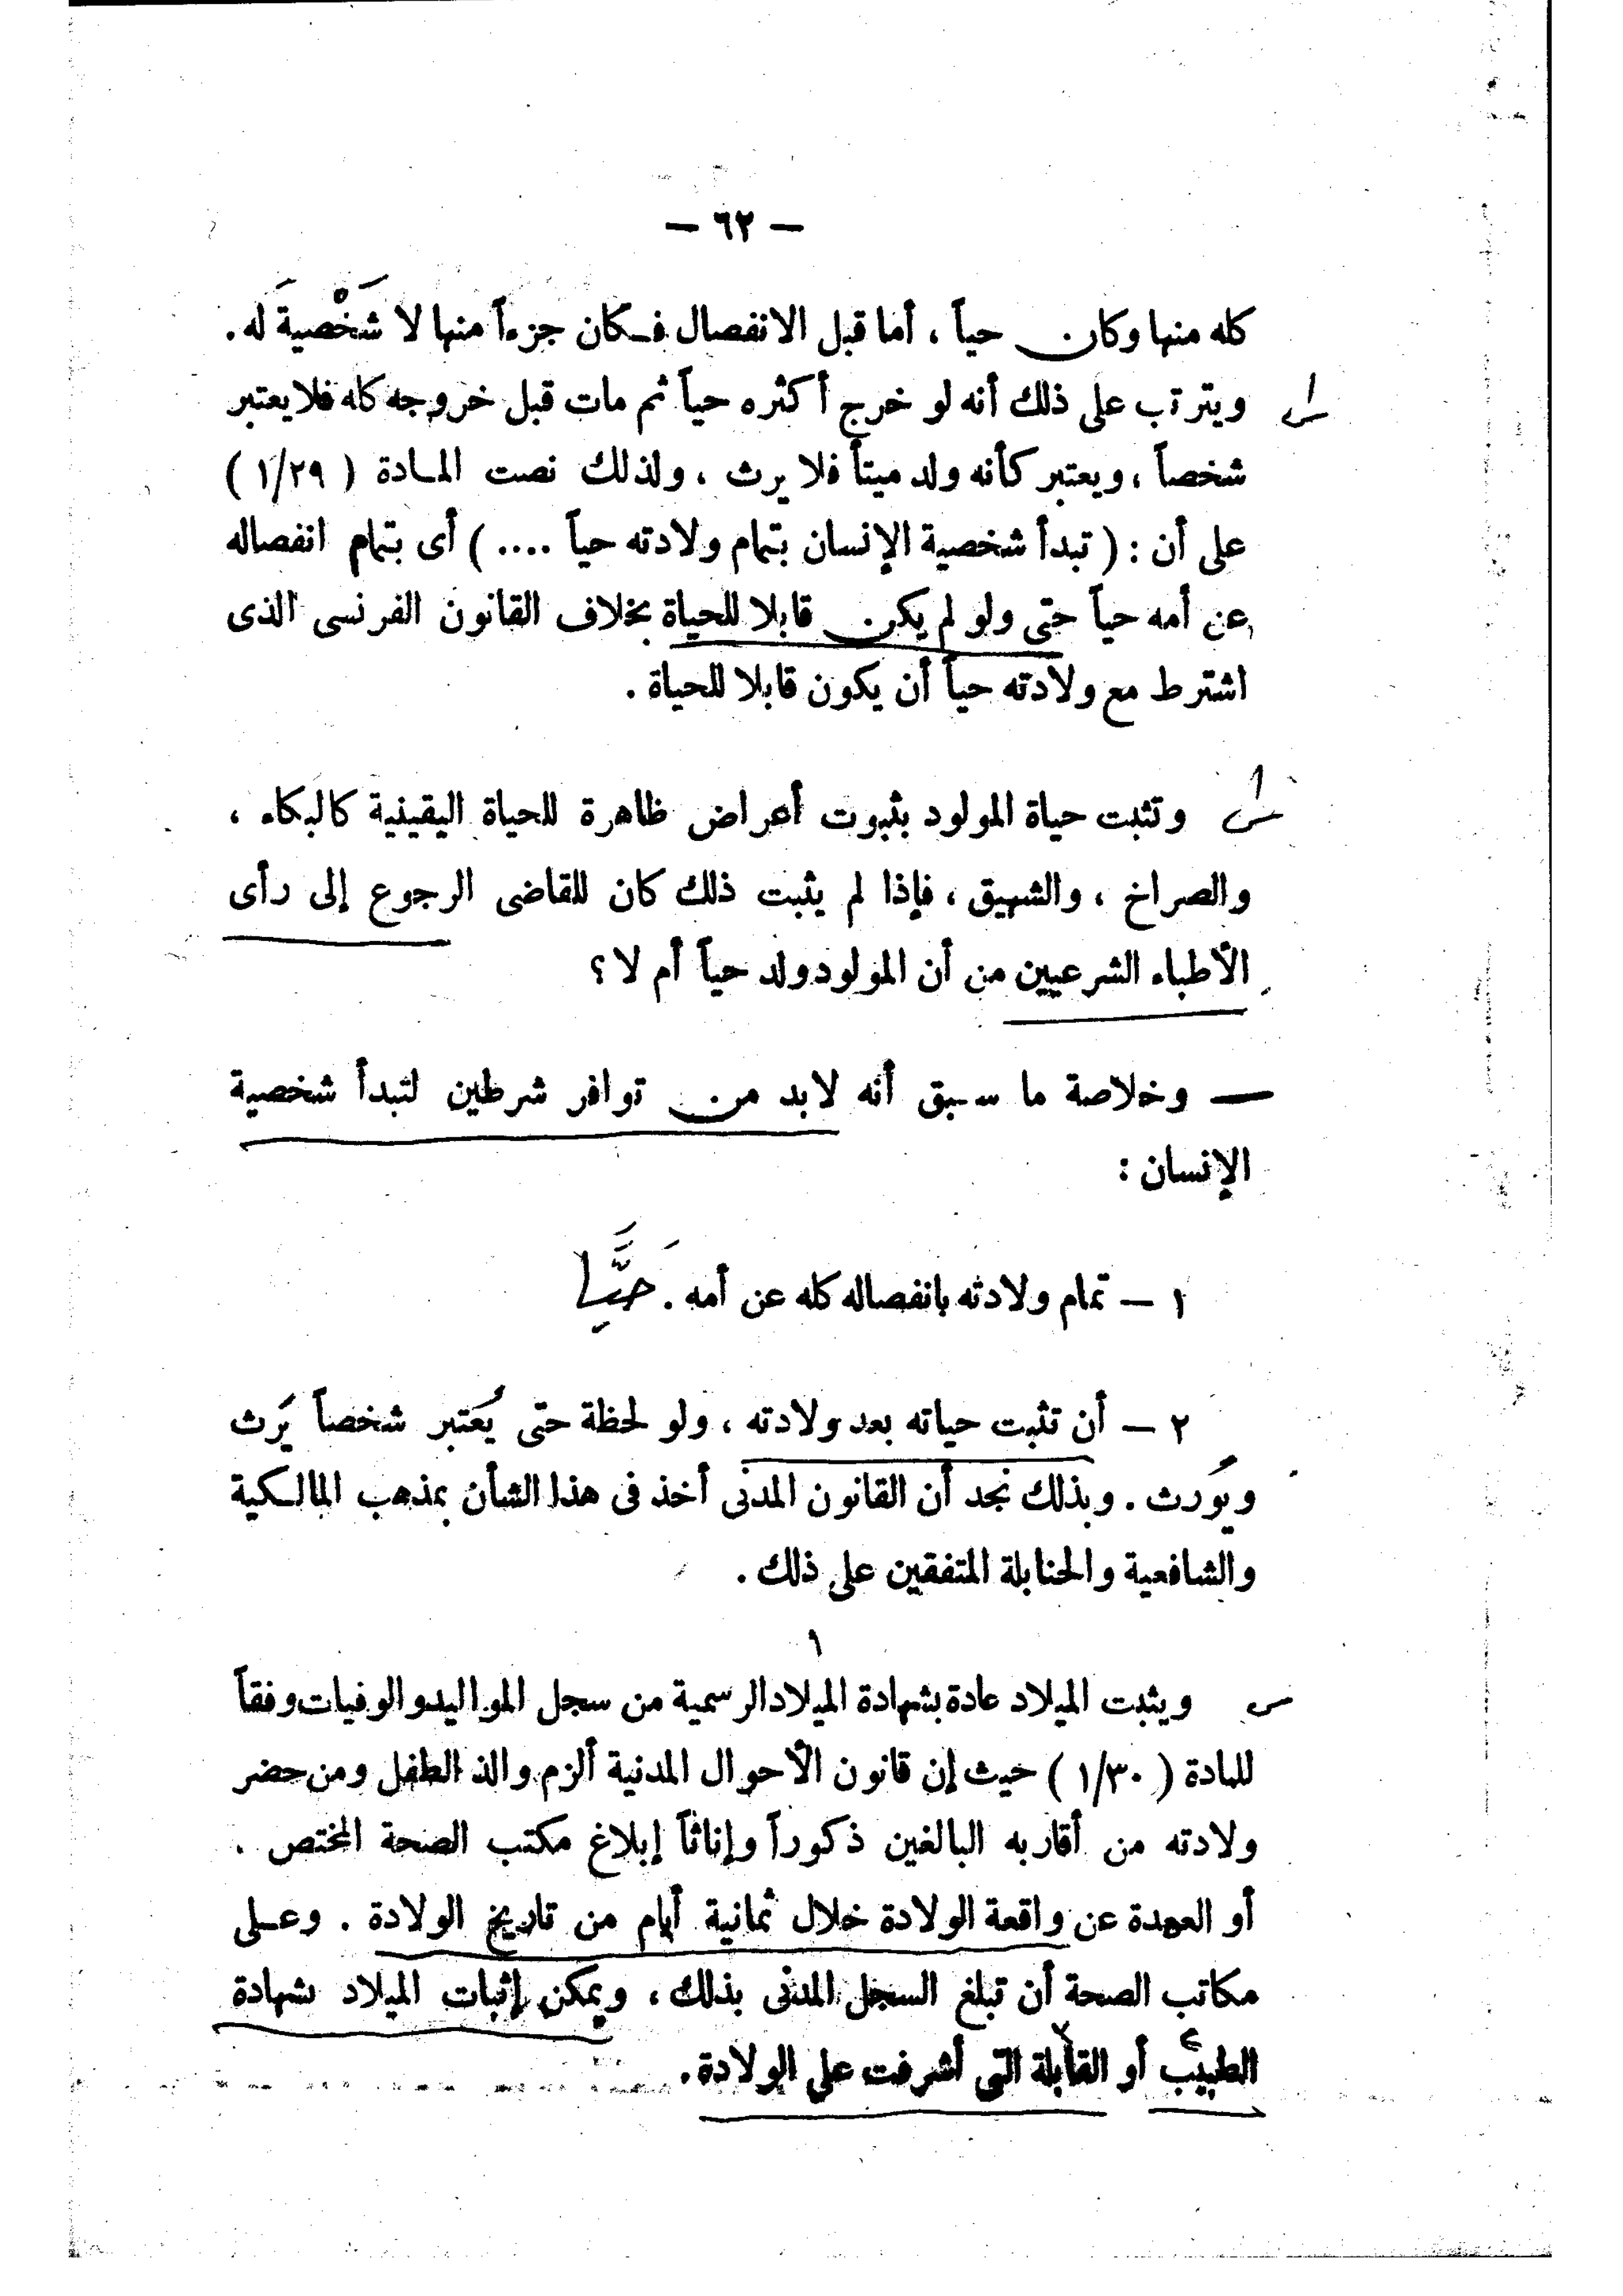 — ٦٢ —
كله منها وكان حياً ، أما قبل الانفصال فكان جزءاً منها لا شَخْصيةَ له .
ويترتب على ذلك أنه لو خرج أكثره حياً ثم مات قبل خروجه كله فلا يعتبر
شخصاً ، ويعتبر كأنه ولد ميتاً فلا يرث ، ولذلك نصت المادة ( ١/٢٩ )
على أن : ( تبدأ شخصية الإنسان بتمام ولادته حياً .... ) أى بتمام انفصاله
عن أمه حياً حتى ولو لم يكن قابلا للحياة بخلاف القانون الفرنسى الذى
اشترط مع ولادته حياً أن يكون قابلا للحياة .
وتثبت حياة المولود بثبوت أعراض ظاهرة للحياة اليقينية كالبكاء ،
والصراخ ، والشهيق ، فإذا لم يثبت ذلك كان للقاضى الرجوع إلى رأى
الأطباء الشرعيين من أن المولود ولد حياً أم لا ؟
— وخلاصة ما سبق أنه لابد من توافر شرطين لتبدأ شخصية
الإنسان :
١ — تمام ولادته بانفصاله كله عن أمه . حَيًّا
٢ — أن تثبت حياته بعد ولادته ، ولو لحظة حتى يُعتبر شخصاً يَرث
ويَورث . وبذلك نجد أن القانون المدنى أخذ فى هذا الشأن بمذهب المالكية
والشافعية والحنابلة المتفقين على ذلك .
١
ويثبت الميلاد عادة بشهادة الميلاد الرسمية من سجل المواليد والوفيات وفقاً
للمادة ( ١/٣٠ ) حيث إن قانون الأحوال المدنية ألزم والد الطفل ومن حضر
ولادته من أقاربه البالغين ذكوراً وإناثاً إبلاغ مكتب الصحة المختص .
أو العهدة عن واقعة الولادة خلال ثمانية أيام من تاريخ الولادة . وعلى
مكاتب الصحة أن تبلغ السجل المدنى بذلك ، ويمكن إثبات الميلاد شهادة
الطبيب أو القابلة التى أشرفت على الولادة .